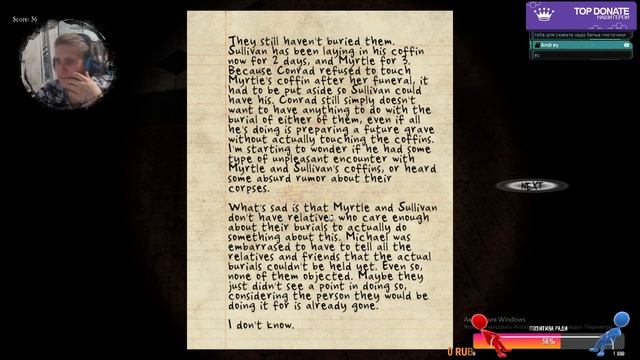 Score: 36
TOP DONATE
НАШИ ГЕРОИ
Andrey
They still haven't buried them.
Sullivan has been laying in his coffin
now for 2 days, and Myrtle for 3.
Because Conrad refused to touch
Myrtle's coffin after her funeral, it
had to be put aside so Sullivan could
have his. Conrad still simply doesn't
want to have anything to do with the
burial of either of them, even if all
he's doing is preparing a future grave
without actually touching the coffins.
I'm starting to wonder if he had some
type of unpleasant encounter with
Myrtle and Sullivan's coffins, or heard
some absurd rumor about their
corpses.
What's sad is that Myrtle and Sullivan
don't have relatives who care enough
about their burials to actually do
something about this. Michael was
embarrased to have to tell all the
relatives and friends that the actual
burials couldn't be held yet. Even so,
none of them objected. Maybe they
just didn't see a point in doing so,
considering the person they would be
doing it for is already gone.
I don't know.
NEXT
Windows
ПОЗИТИВА РАДИ
56%
0 RUB
1 000